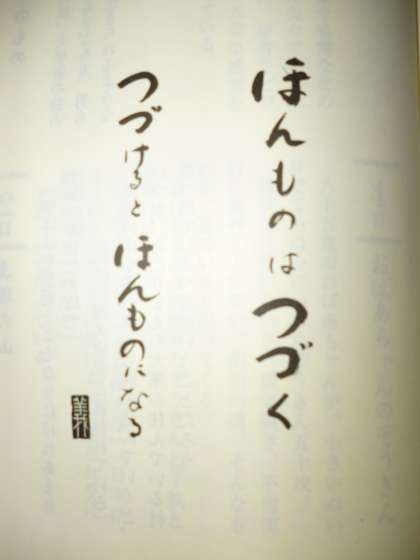 ほんものはつづく
つづけるとほんものになる
義